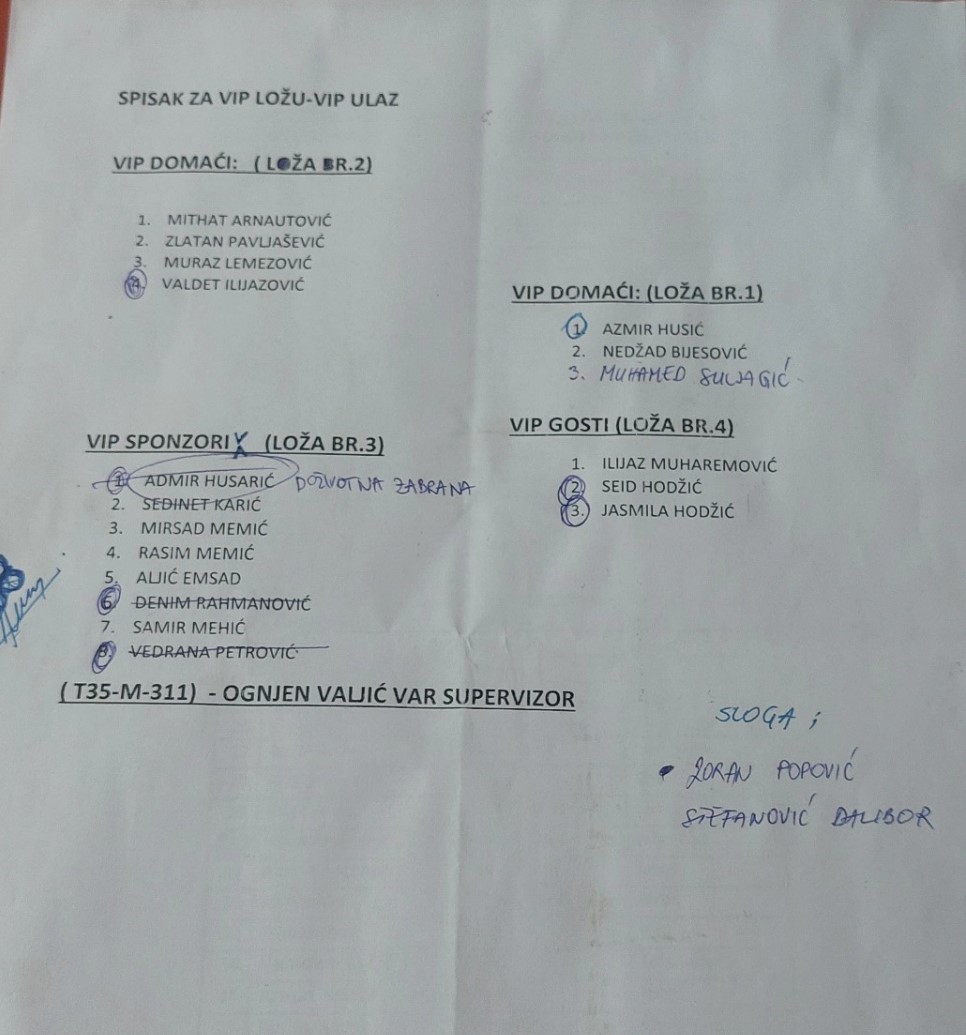 SPISAK ZA VIP LOŽU-VIP ULAZ
VIP DOMAĆI: ( LOŽA BR.2)
1. MITHAT ARNAUTOVIĆ
2. ZLATAN PAVLJAŠEVIĆ
3. MURAZ LEMEZOVIĆ
4. VALDET ILIJAZOVIĆ
VIP DOMAĆI: (LOŽA BR.1)
1. AZMIR HUSIĆ
2. NEDŽAD BIJESOVIĆ
3. MUHAMED SULJAGIĆ
VIP SPONZORI (LOŽA BR.3)
1. ADMIR HUSARIĆ DOZVOTNA ZABRANA
2. SEDINET KARIĆ
3. MIRSAD MEMIĆ
4. RASIM MEMIĆ
5. ALJIĆ EMSAD
6. DENIM RAHMANOVIĆ
7. SAMIR MEHIĆ
8. VEDRANA PETROVIĆ
VIP GOSTI (LOŽA BR.4)
1. ILIJAZ MUHAREMOVIĆ
2. SEID HODŽIĆ
3. JASMILA HODŽIĆ
( T35-M-311) - OGNJEN VALJIĆ VAR SUPERVIZOR
SLOGA ;
• ZORAN POPOVIĆ
STEFANOVIĆ DALIBOR